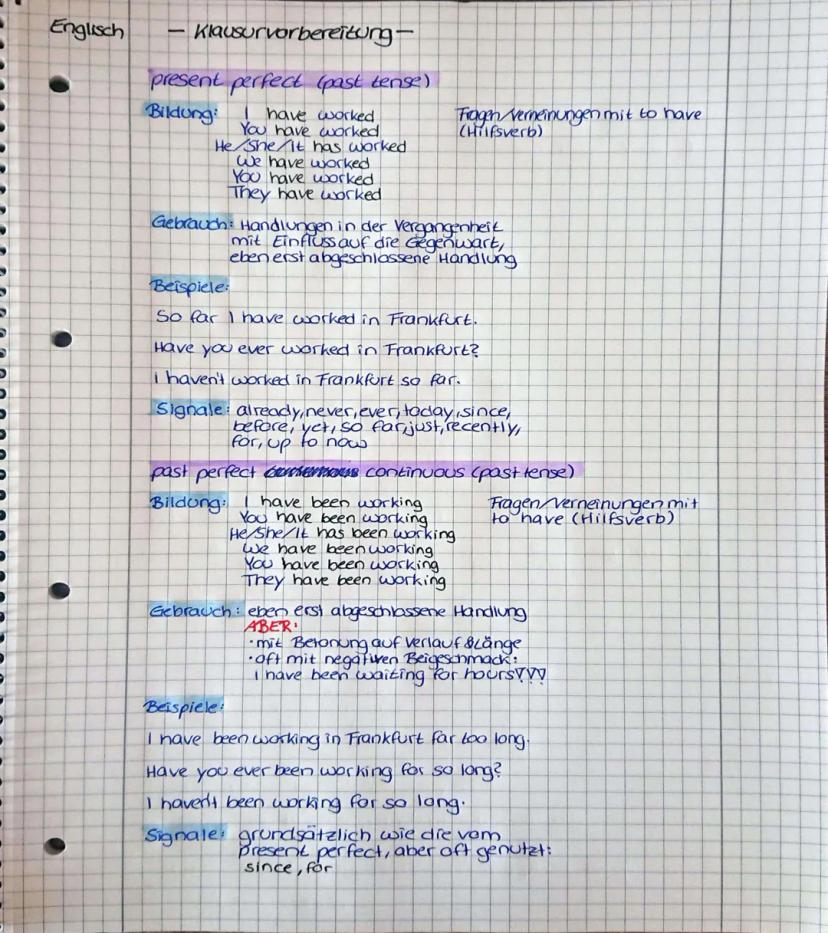 Englisch — Klausurvorbereitung —
present perfect (past tense)
Bildung: I have worked
You have worked
He/She/It has worked
We have worked
You have worked
They have worked
Fragen/Verneinungen mit to have
(Hilfsverb)
Gebrauch: Handlungen in der Vergangenheit
mit Einfluss auf die Gegenwart,
eben erst abgeschlossene Handlung
Beispiele:
So far I have worked in Frankfurt.
Have you ever worked in Frankfurt?
I haven't worked in Frankfurt so far.
Signale: already, never, ever, today, since,
before, yet, so far, just, recently,
for, up to now
past perfect continuous (past tense)
Bildung: I have been working
You have been working
He/She/It has been working
We have been working
You have been working
They have been working
Fragen/Verneinungen mit
to have (Hilfsverb)
Gebrauch: eben erst abgeschlossene Handlung
ABER:
· mit Betonung auf Verlauf & Länge
· oft mit negativen Beigeschmack:
I have been waiting for hours!!!
Beispiele:
I have been working in Frankfurt far too long.
Have you ever been working for so long?
I haven't been working for so long.
Signale: grundsätzlich wie die vom
present perfect, aber oft genutzt:
since, for